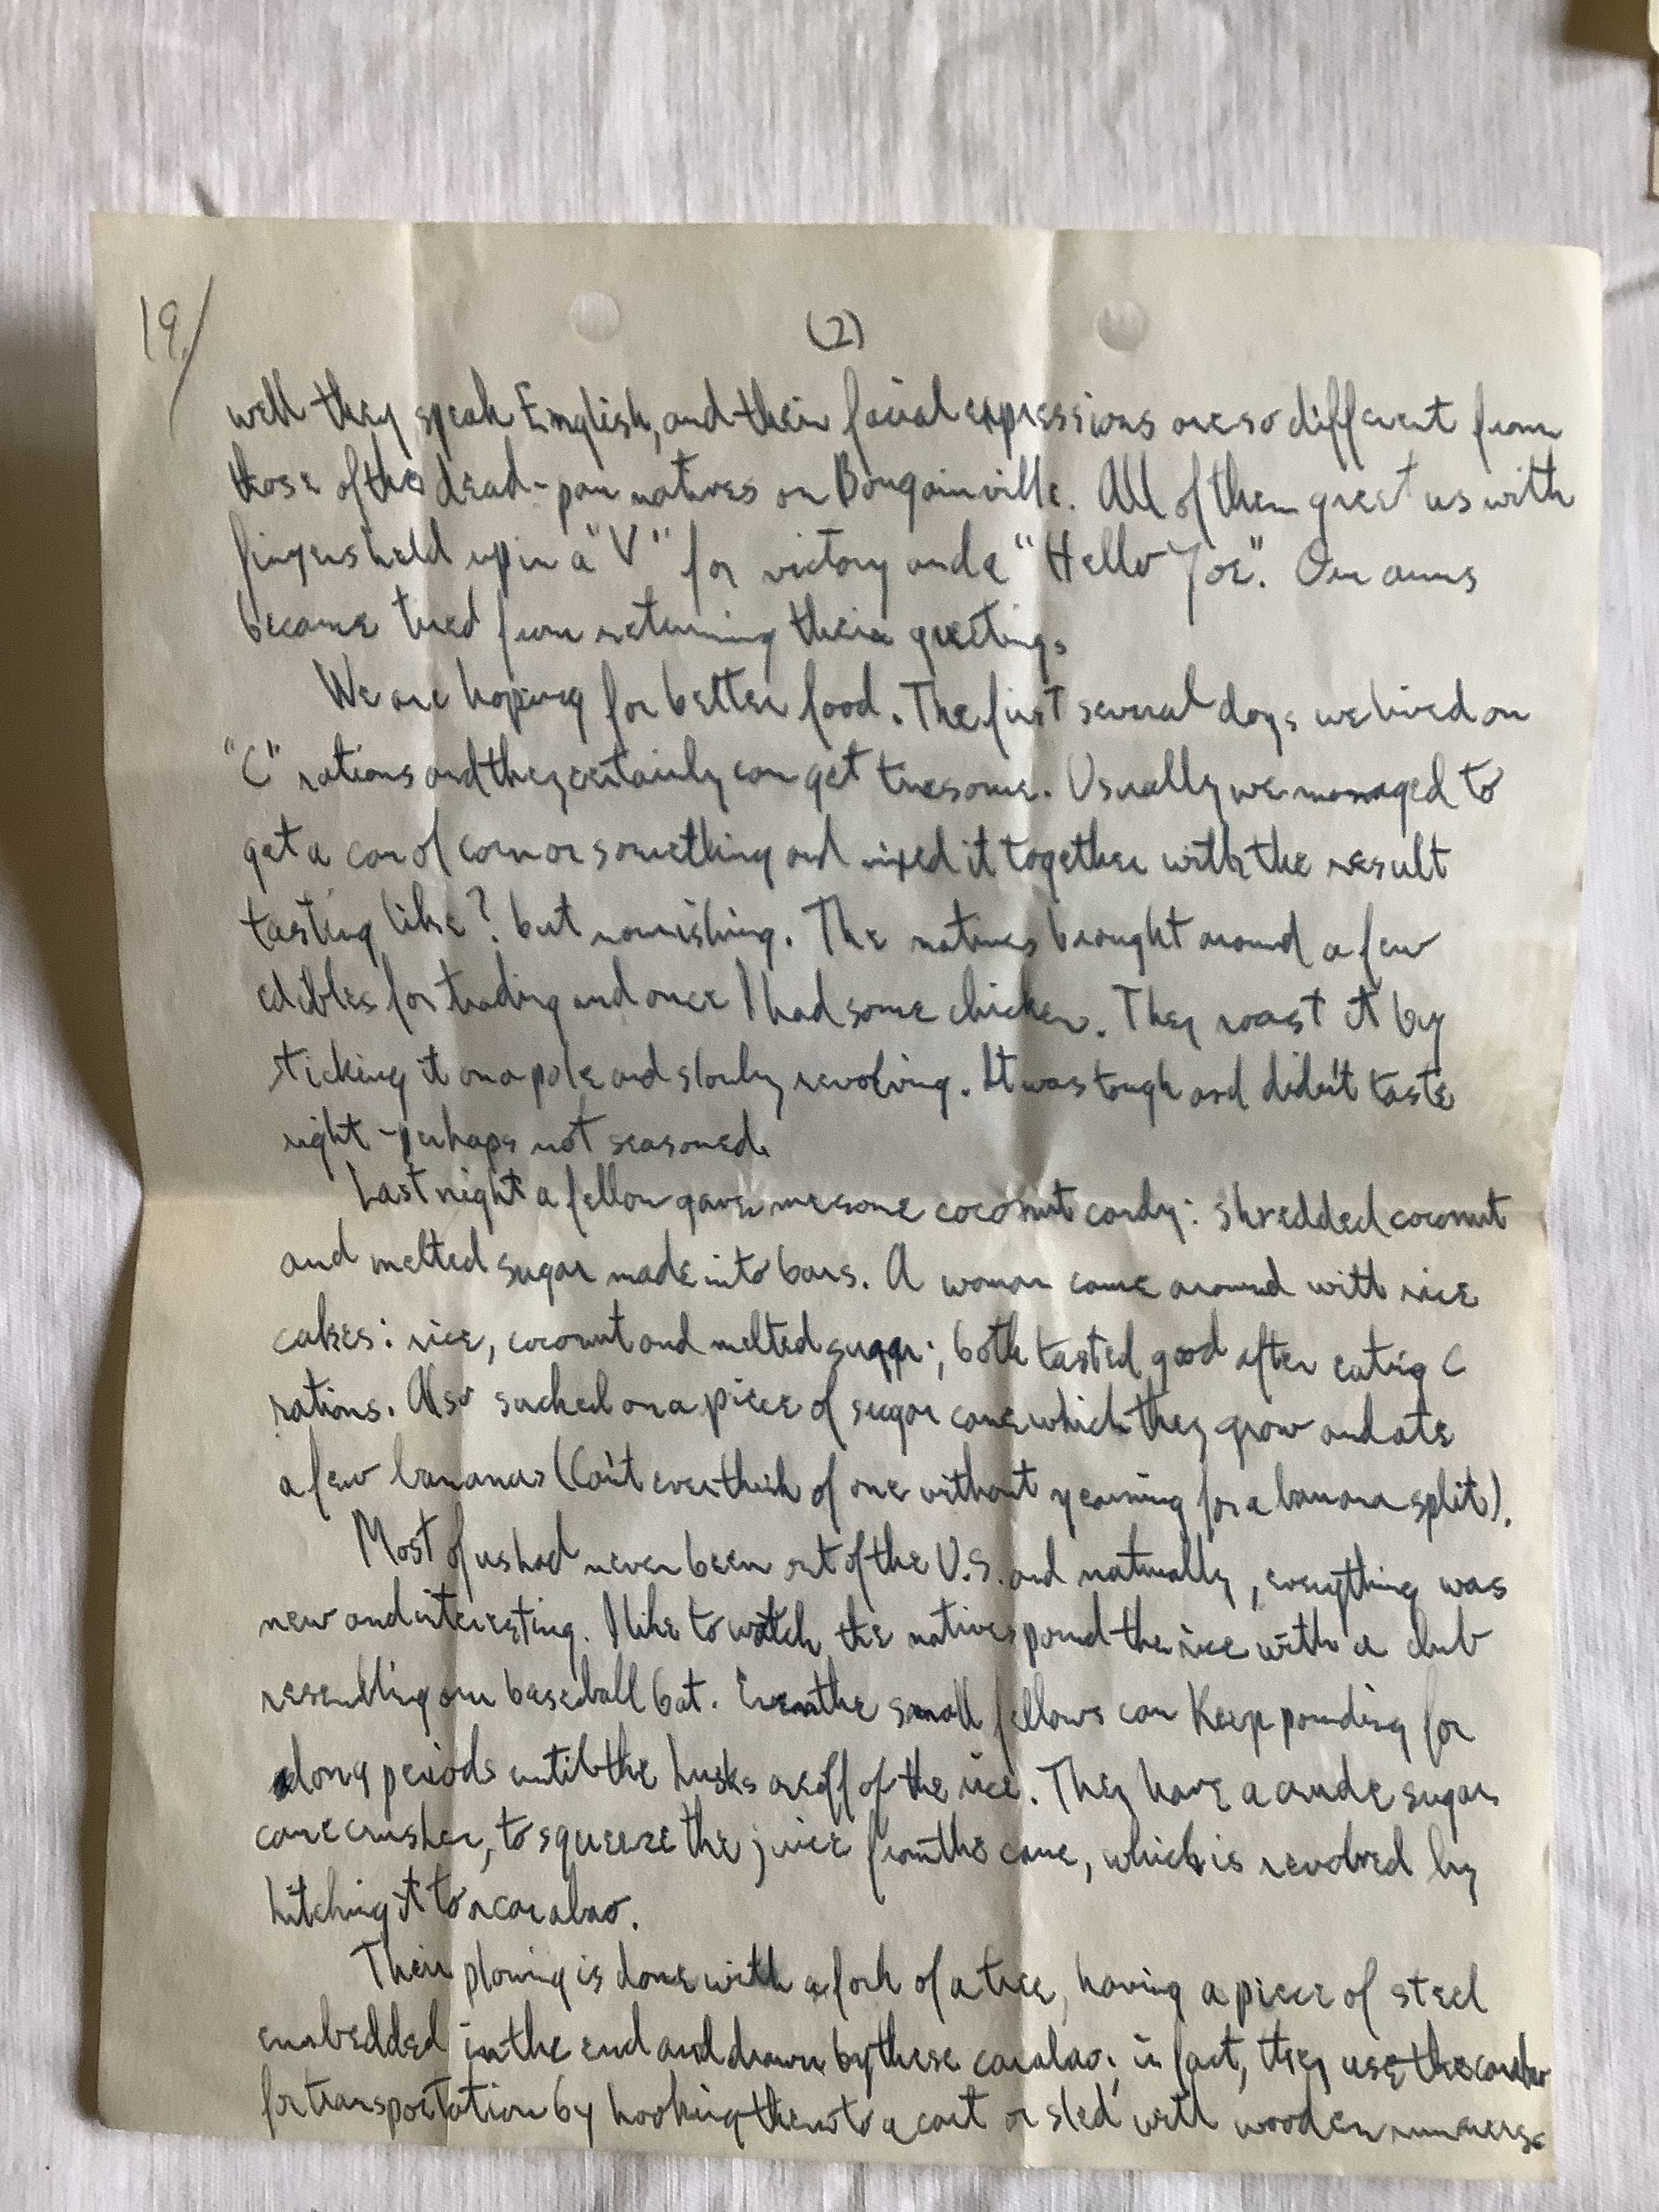 19/
(2)
well they speak English, and their facial expressions are so different from
those of the dead-pan natives on Bougainville. All of them greet us with
fingers held up in a "V" for victory and a "Hello Joe". Our arms
became tired from returning their greetings.
We are hoping for better food. The first several days we lived on
"C" rations and they certainly can get tiresome. Usually we managed to
get a can of corn or something and mixed it together with the result
tasting like? but nourishing. The natives brought around a few
edibles for trading and once I had some chicken. They roast it by
sticking it on a pole and slowly revolving. It was tough and didn't taste
right - perhaps not seasoned.
Last night a fellow gave me some coconut candy: shredded coconut
and melted sugar made into bars. A woman came around with rice
cakes: rice, coconut and melted sugar; both tasted good after eating C
rations. Also sucked on a piece of sugar cane which they grow and ate
a few bananas (Can't ever think of one without yearning for a banana split).
Most of us had never been out of the U.S. and naturally, everything was
new and interesting. I like to watch the natives pound the rice with a club
resembling our baseball bat. Even the small fellows can keep pounding for
long periods until the husks are off of the rice. They have a crude sugar
cane crusher, to squeeze the juice from the cane, which is revolved by
hitching it to a carabao.
Their plowing is done with a fork of a tree, having a piece of steel
embedded in the end and drawn by these carabao; in fact, they use the carabao
for transportation by hooking them to a cart or sled with wooden runners.